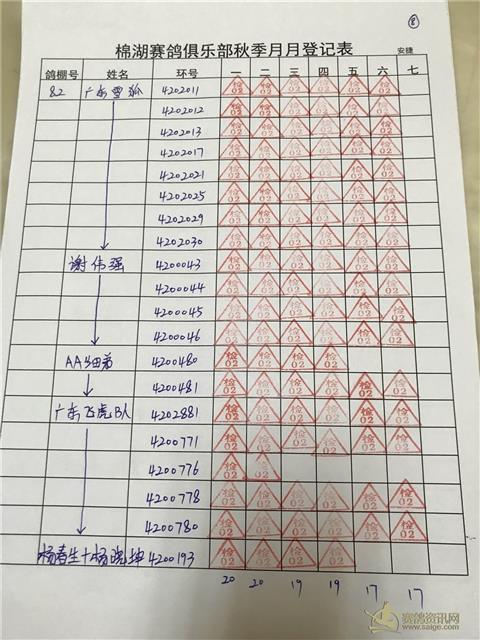 8
棉湖赛鸽俱乐部秋季月月登记表 安捷
鸽棚号 姓名 环号 一 二 三 四 五 六 七
82 广东雪狐 4202011 检02 检02 检02 检02 检02 检02
4202012 检02 检02 检02 检02 检02 检02
4202013 检02 检02 检02 检02 检02 检02
4202017 检02 检02 检02 检02 检02 检02
4202021 检02 检02 检02 检02 检02 检02
4202025 检02 检02 检02 检02 检02 检02
4202029 检02 检02 检02 检02 检02 检02
4202030 检02 检02 检02 检02 检02 检02
谢伟强 4200043 检02 检02 检02 检02 检02 检02
4200044 检02 检02 检02 检02 检02 检02
4200045 检02 检02 检02 检02 检02 检02
4200046 检02 检02 检02 检02 检02 检02
AA细弟 4200480 检02 检02 检02 检02
4200481 检02 检02 检02 检02 检02 检02
广东飞虎队 4202881 检02 检02 检02 检02 检02 检02
4200771 检02 检02 检02 检02 检02 检02
4200776 检02 检02
4200778 检02 检02 检02 检02 检02 检02
4200780 检02 检02 检02 检02 检02 检02
杨春生+杨晓坤 4200193 检02 检02 检02 检02
20 20 19 19 17 17
赛鸽资讯网
www.saige.com